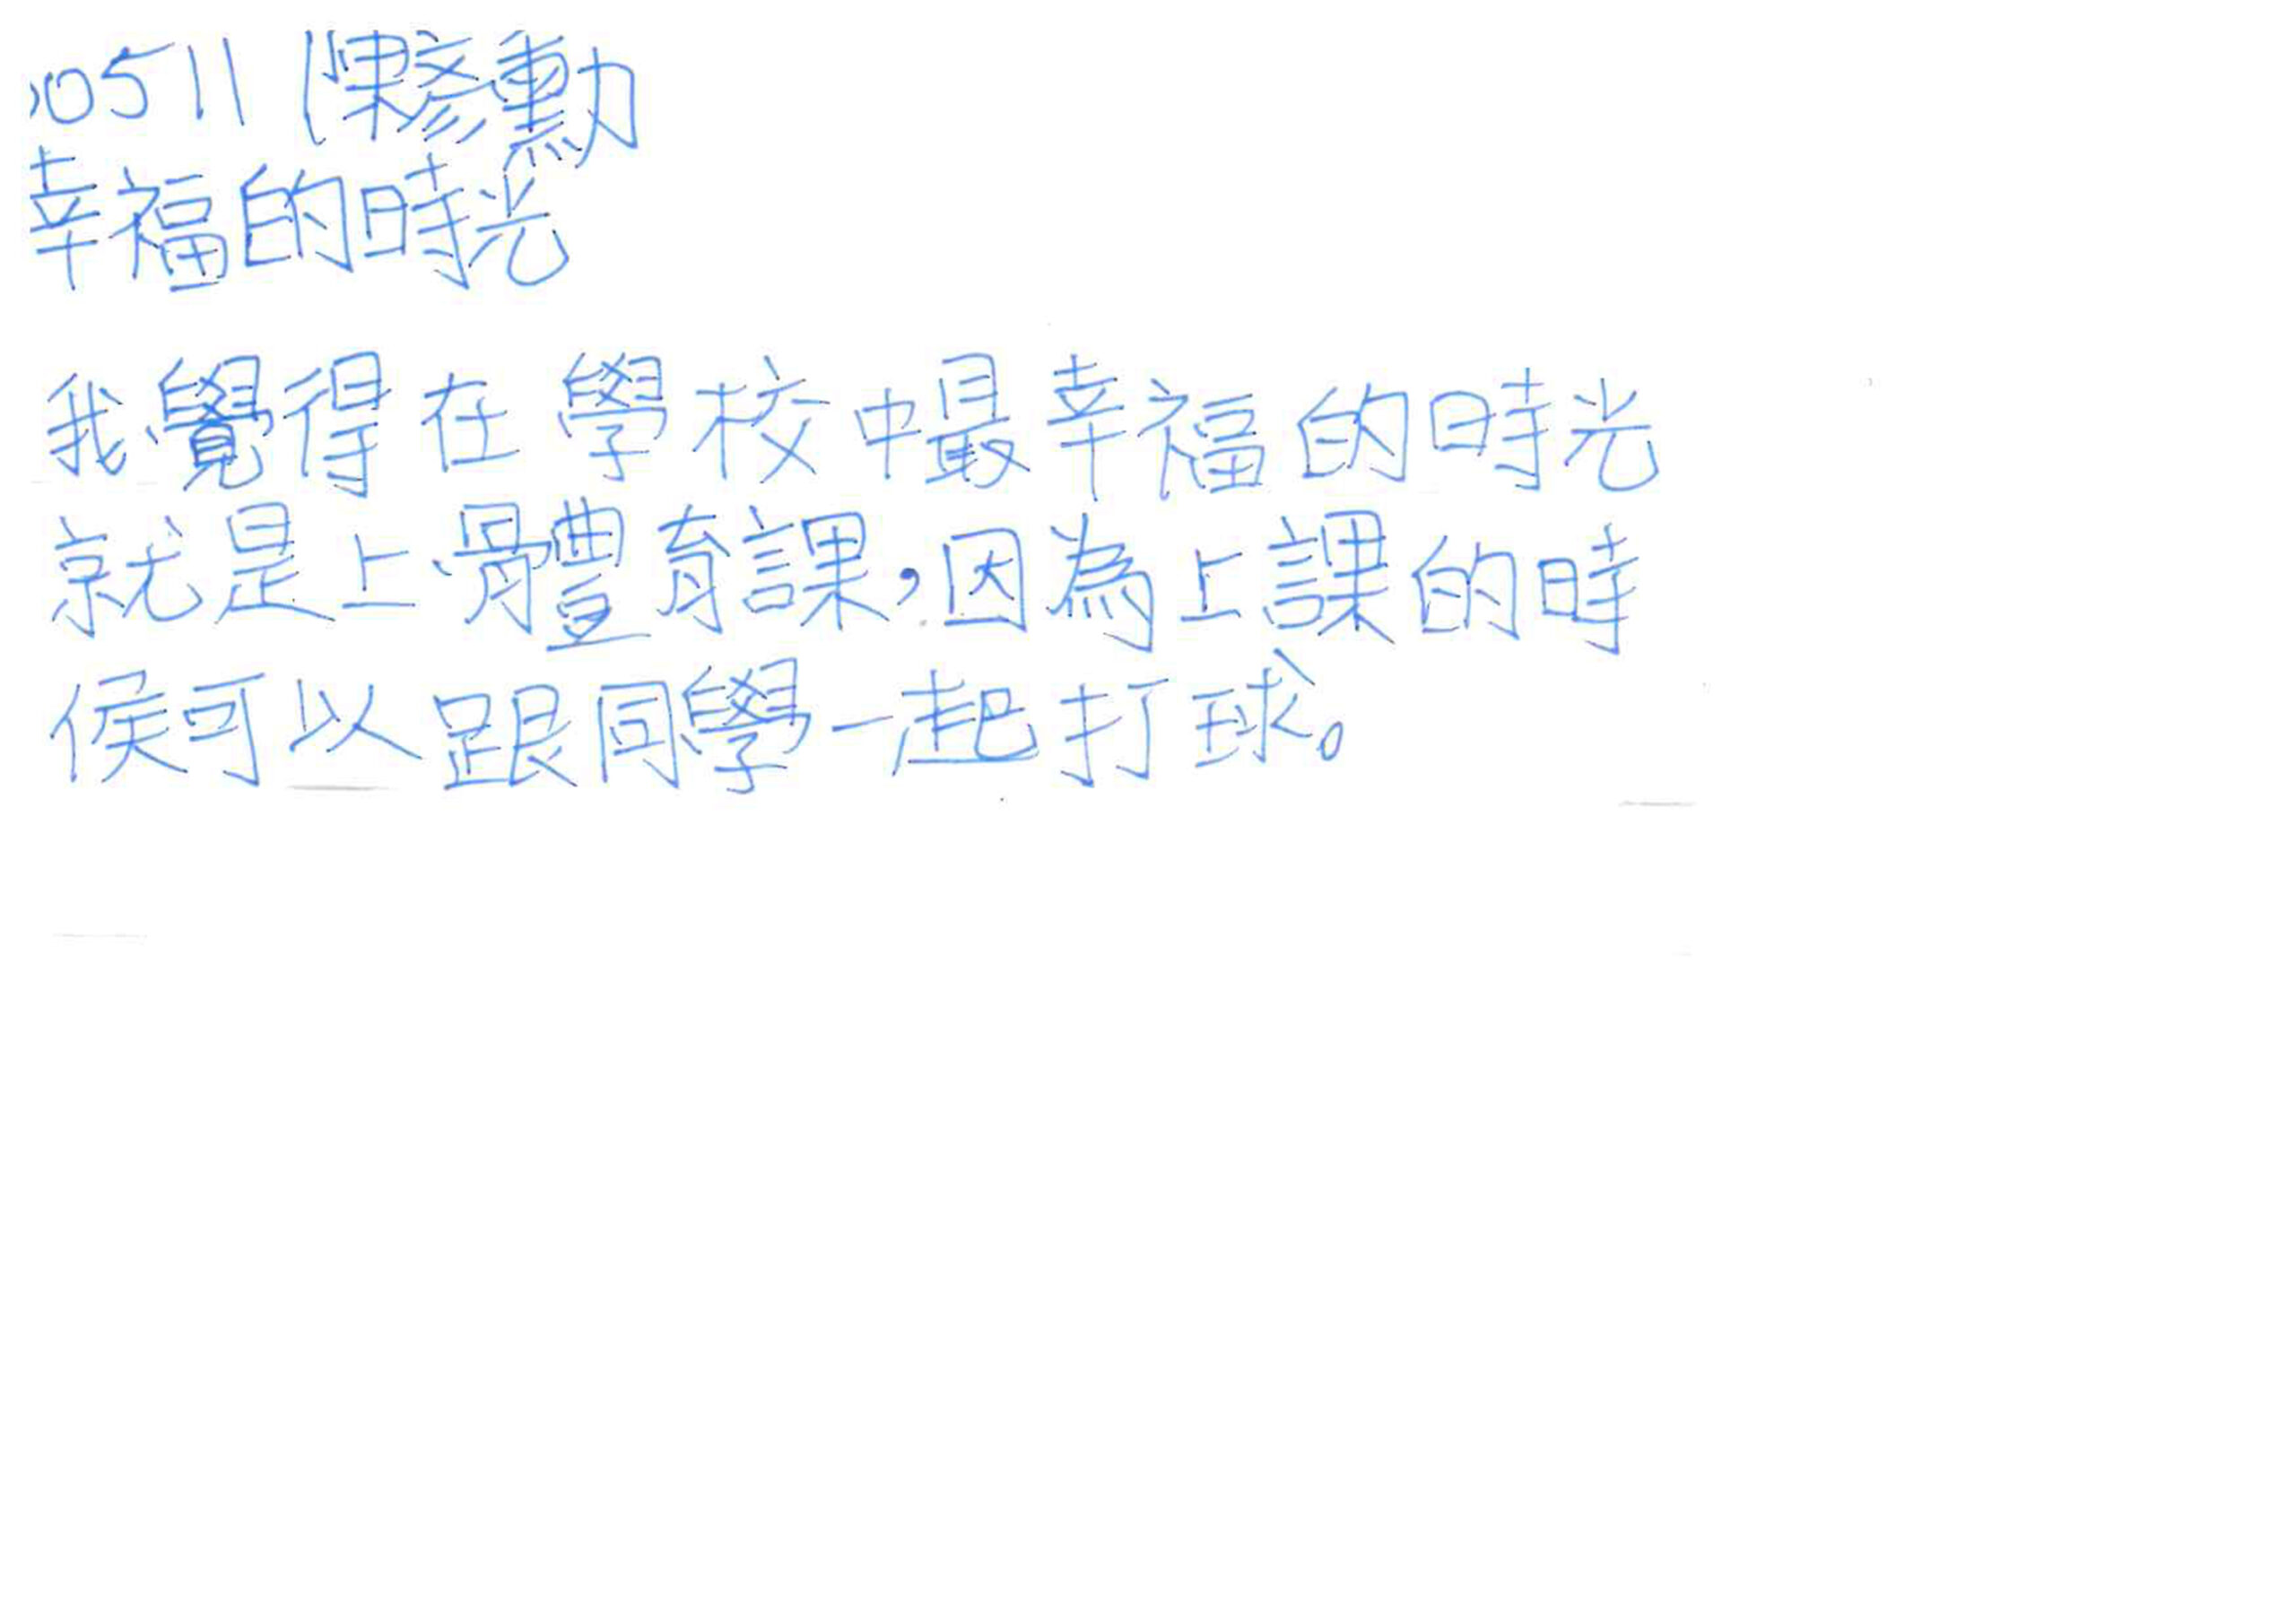 0511 陳彥勳
幸福的時光
我覺得在學校中最幸福的時光
就是上體育課,因為上課的時
侯可以跟同學一起打球。